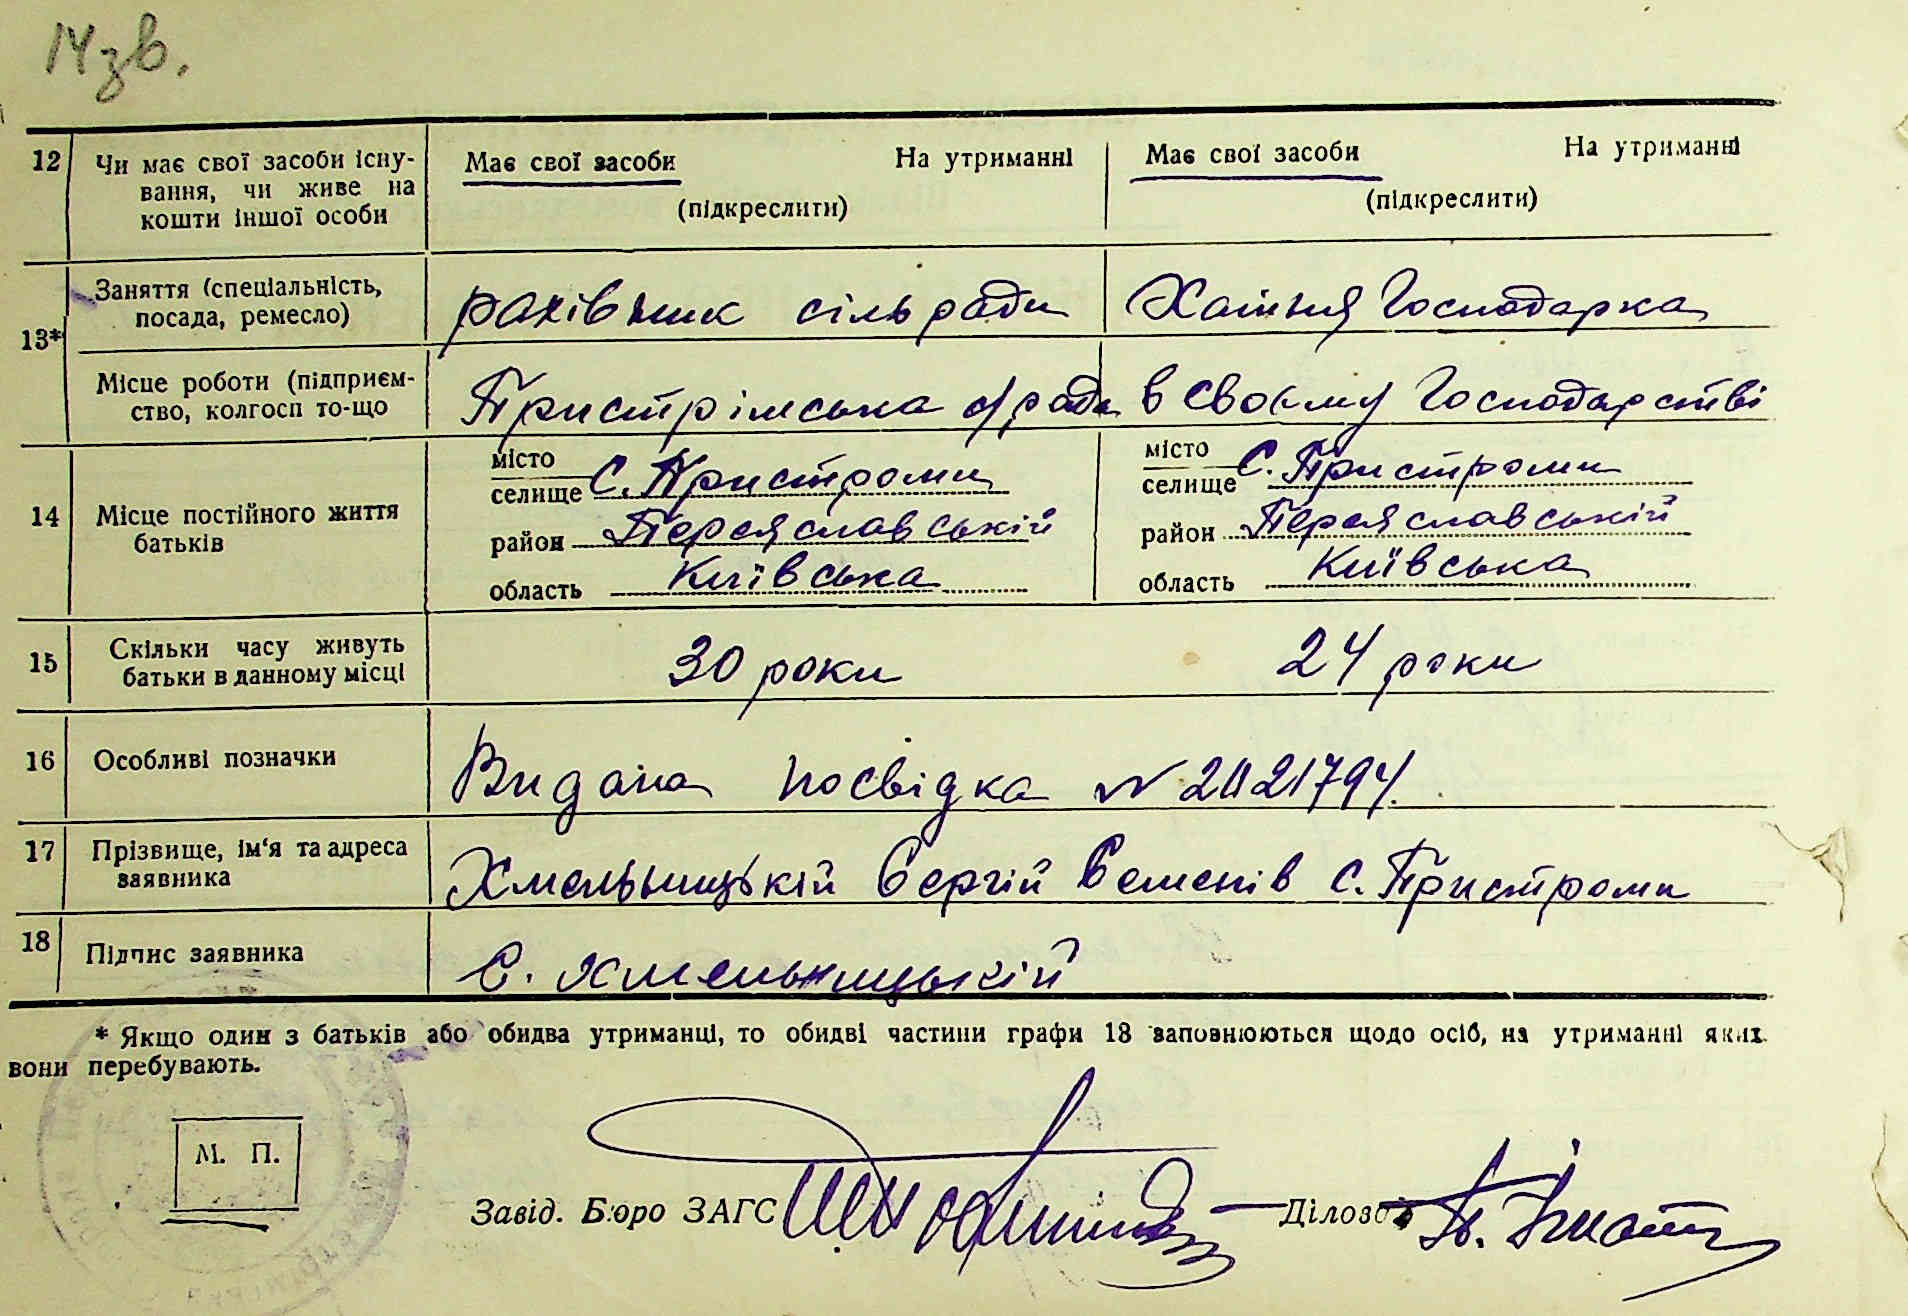 14 зв.
12 Чи має свої засоби існу- Має свої засоби На утриманні Має свої засоби На утриманні
вання, чи живе на
кошти іншої особи (підкреслити) (підкреслити)
Заняття (спеціальність, рахівник сільради Хатня Господарка
посада, ремесло)
13*
Місце роботи (підприєм- Пристрімська с/рада в своєму Господарстві
ство, колгосп то-що
місто місто
селище С. Пристроми селище С. Пристроми
14 Місце постійного життя
батьків
район Переяславській район Переяславській
область Київська область Київська
15 Скільки часу живуть 30 роки 24 роки
батьки в данному місці
16 Особливі позначки Видана посвідка № 2021794.
17 Прізвище, ім'я та адреса Хмельницькій Сергій Семенів с. Пристроми
заявника
18 Підпис заявника С. Хмельницькій
* Якщо один з батьків або обидва утриманці, то обидві частини графи 18 заповнюються щодо осіб, на утриманні яких
вони перебувають.
М. П.
Завід. Бюро ЗАГС Діловод